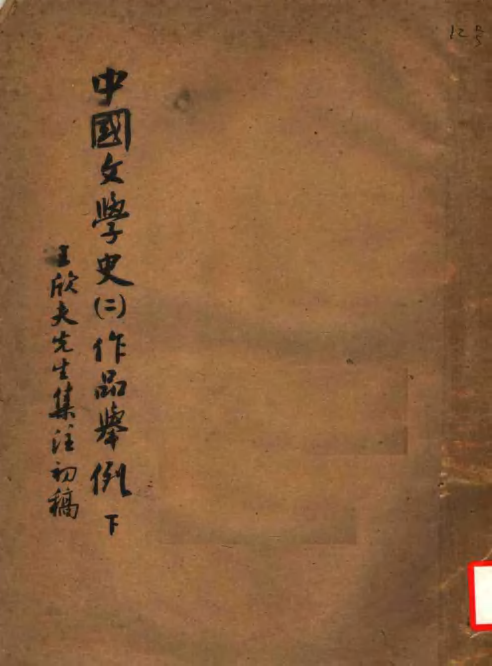 中國文學史(二)作品舉例 下
王欣夫先生集注初稿